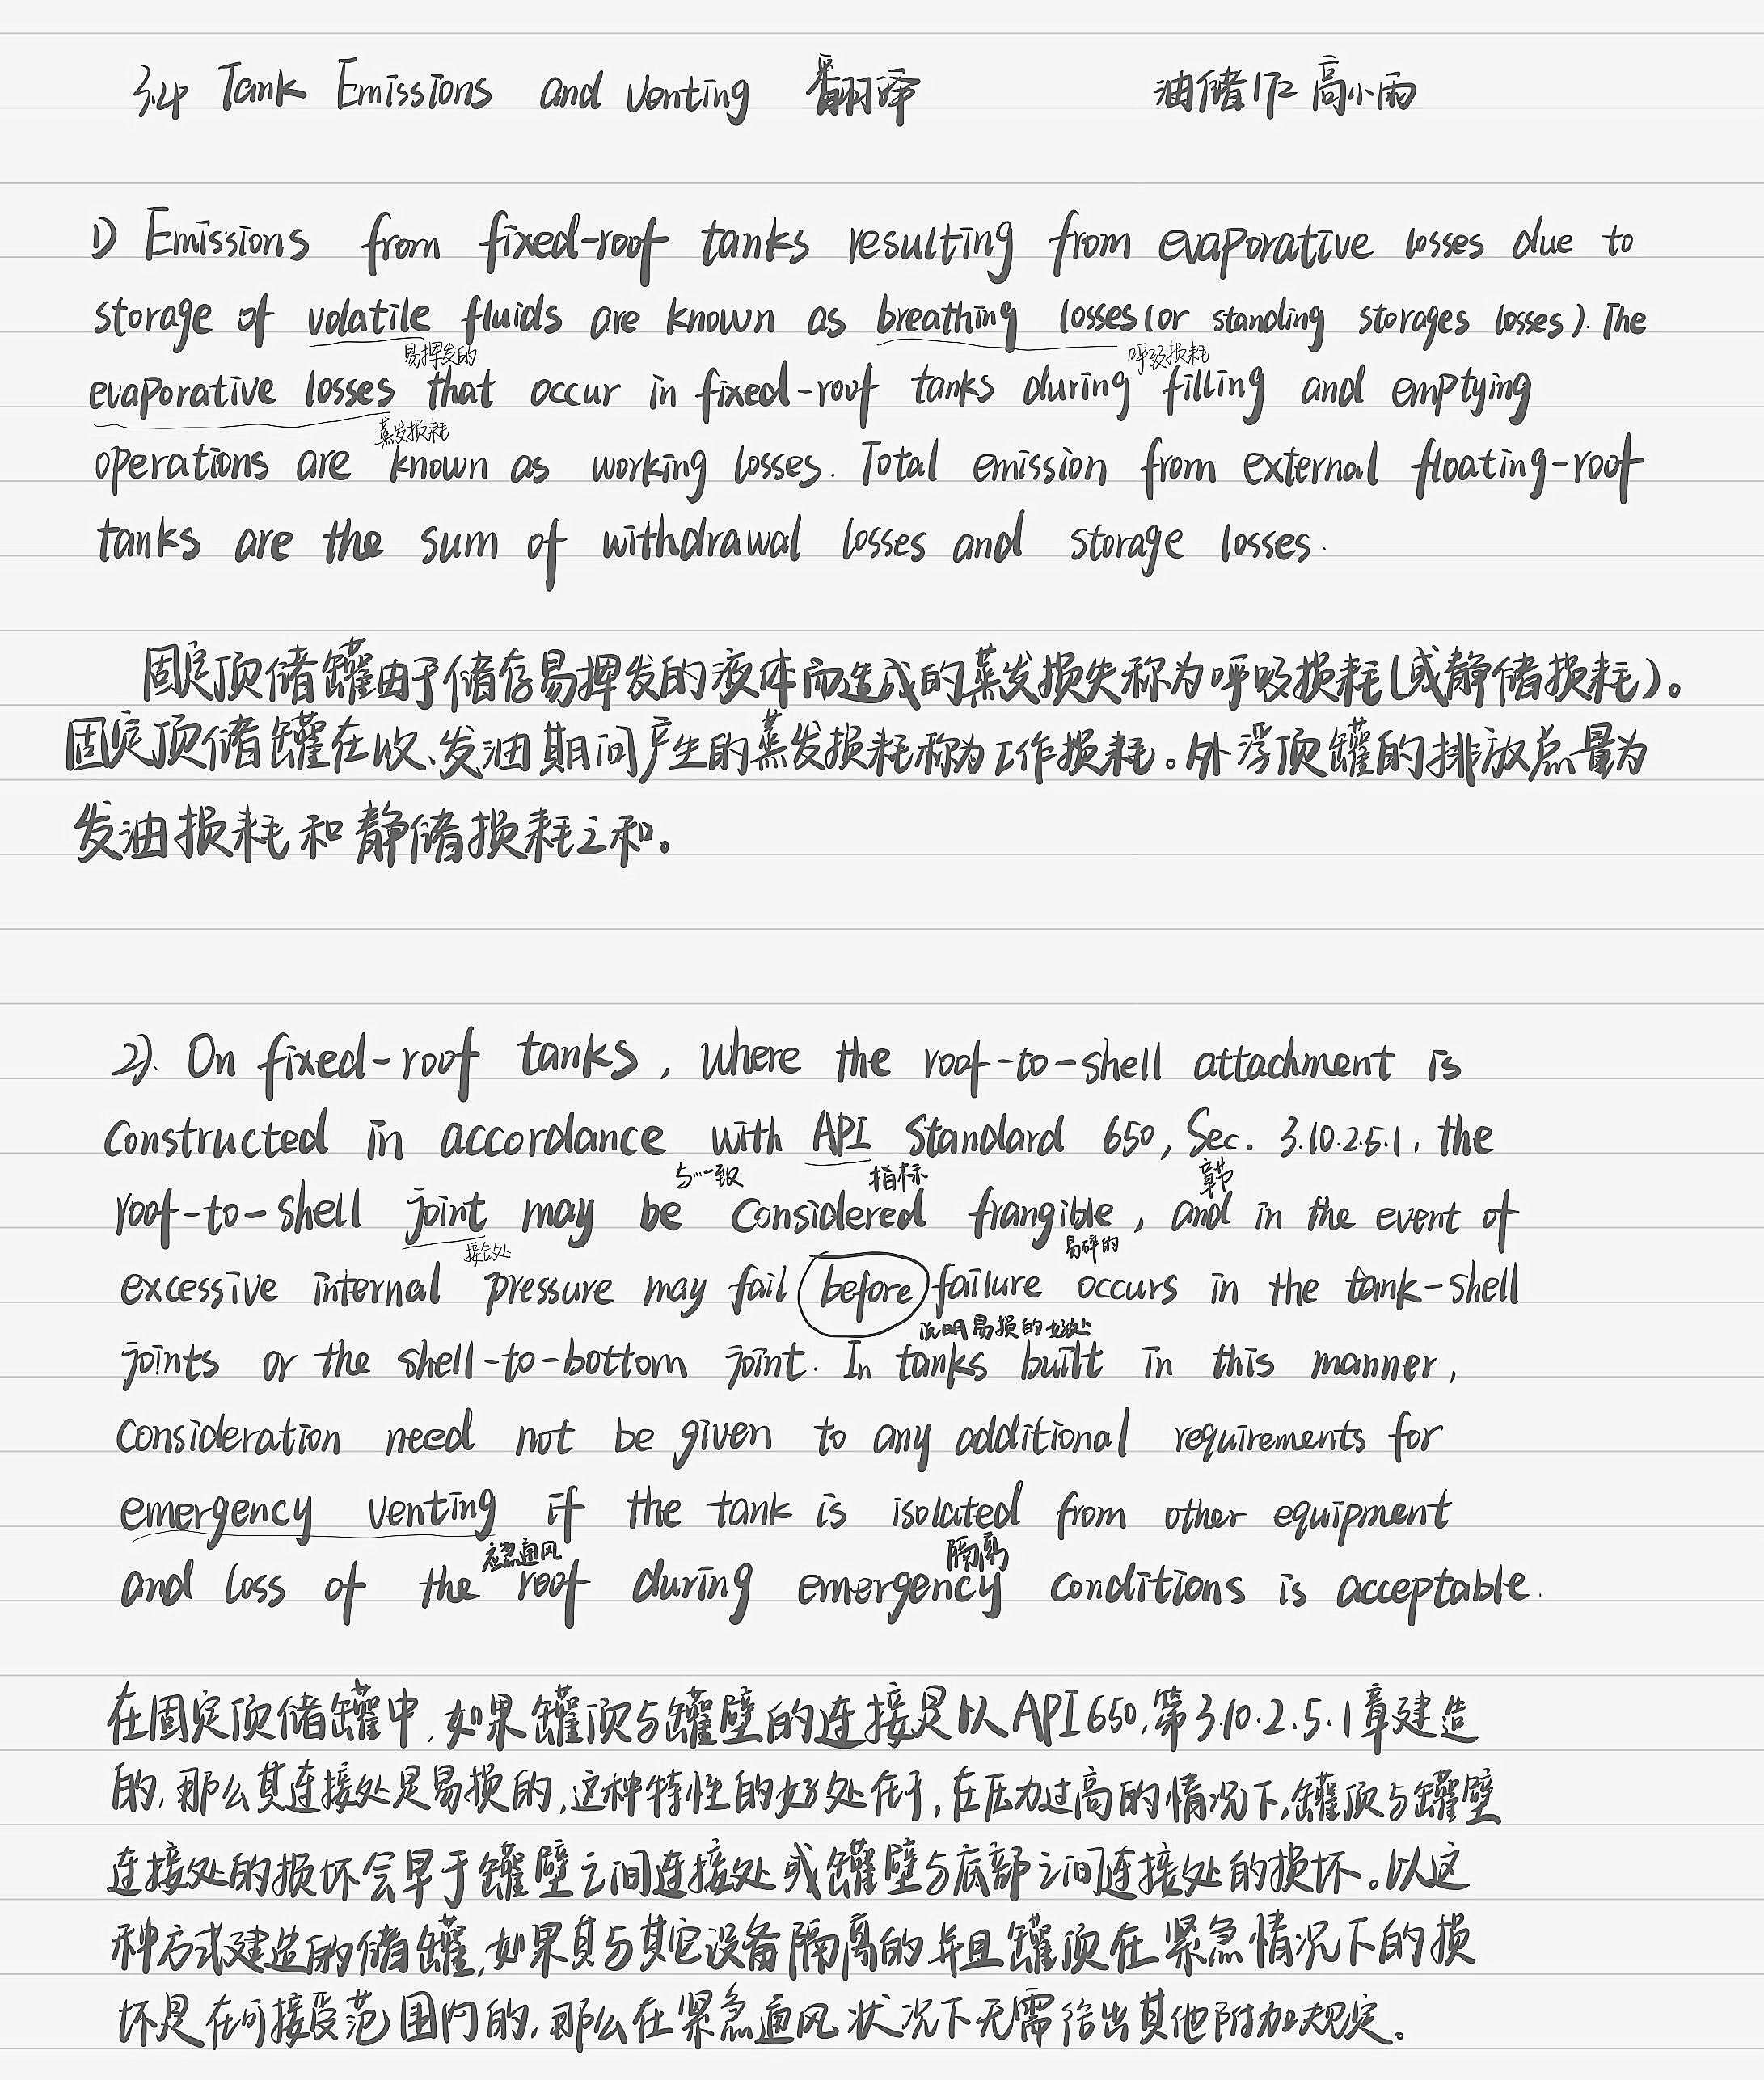 3.4 Tank Emissions and Venting 翻译 油储172 高小雨
1) Emissions from fixed-roof tanks resulting from evaporative losses due to
storage of volatile fluids are known as breathing losses (or standing storages losses). The
易挥发的 呼吸损耗
evaporative losses that occur in fixed-roof tanks during filling and emptying
蒸发损耗
operations are known as working losses. Total emission from external floating-roof
tanks are the sum of withdrawal losses and storage losses.
固定顶储罐由于储存易挥发的液体而造成的蒸发损失称为呼吸损耗(或静储损耗)。
固定顶储罐在收、发油期间产生的蒸发损耗称为工作损耗。外浮顶罐的排放总量为
发油损耗和静储损耗之和。
2). On fixed-roof tanks, where the roof-to-shell attachment is
constructed in accordance with API Standard 650, Sec. 3.10.2.5.1, the
与…一致 指标 章节
roof-to-shell joint may be considered frangible, and in the event of
接合处 易碎的
excessive internal pressure may fail before failure occurs in the tank-shell
说明易损的好处
joints or the shell-to-bottom joint. In tanks built in this manner,
consideration need not be given to any additional requirements for
emergency venting if the tank is isolated from other equipment
应急通风 隔离
and loss of the roof during emergency conditions is acceptable.
在固定顶储罐中,如果罐顶与罐壁的连接是以API650,第3.10.2.5.1章建造
的,那么其连接处是易损的,这种特性的好处在于,在压力过高的情况下,罐顶与罐壁
连接处的损坏会早于罐壁之间连接处或罐壁与底部之间连接处的损坏。以这
种方式建造的储罐,如果其与其它设备隔离的并且罐顶在紧急情况下的损
坏是在可接受范围内的,那么在紧急通风状况下无需给出其他附加规定。